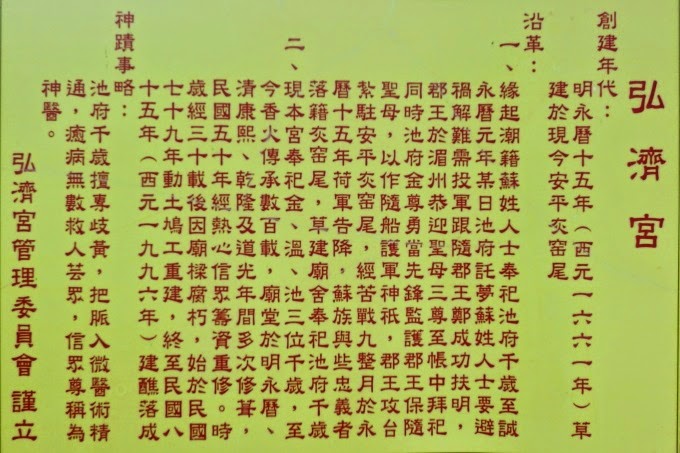 弘濟宮
創建年代：
明永曆十五年（西元一六六一年）草
建於現今安平灰窑尾
沿革：
一、緣起潮籍蘇姓人士奉祀池府千歲至誠
永曆元年某日池府託夢蘇姓人士要避
禍解難需投軍跟隨郡王鄭成功扶明，
郡王於湄州恭迎聖母三尊至帳中拜祀
同時池府金尊勇當先鋒監護郡王保隨
聖母，以作隨船護軍神祇，郡王攻台
紮駐安平灰窑尾，經苦戰九整月於永
曆十五年荷軍告降。蘇族與些忠義者
落籍灰窑尾，草建廟舍奉祀池府千歲
二、現本宮奉祀金、溫、池三位千歲，至
今香火傳承數百載，廟堂於明永曆、
清康熙、乾隆及道光年間多次修葺，
民國五十年經熱心信眾籌資重修。時
歲經三十載後因廟樑腐朽，始於民國
七十九年動土鳩工重建，終至民國八
十五年（西元一九九六年）建醮落成
神蹟事略：
池府千歲擅專歧黃，把脈入微醫術精
通，癒病無數救人芸眾，信眾尊稱為
神醫。
弘濟宮管理委員會 謹立